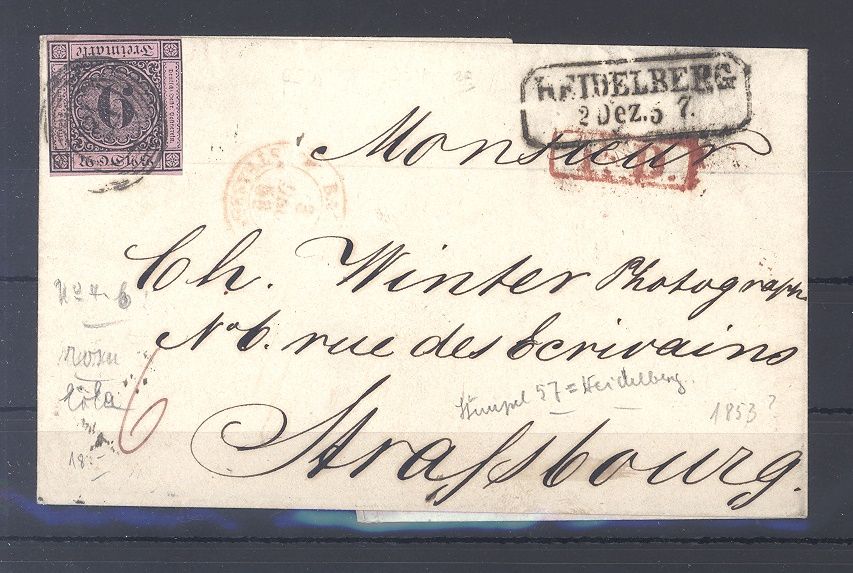 Freimarke
6
BADEN
HEIDELBERG
2 Dez. 5 7.
P.D.
Monsieur
Ch. Winter Photograph.
No 6. rue des Ecrivains
Straſsbourg.
No 4. b
rosa
lila
6
Stempel 57 = Heidelberg.
1853?
18